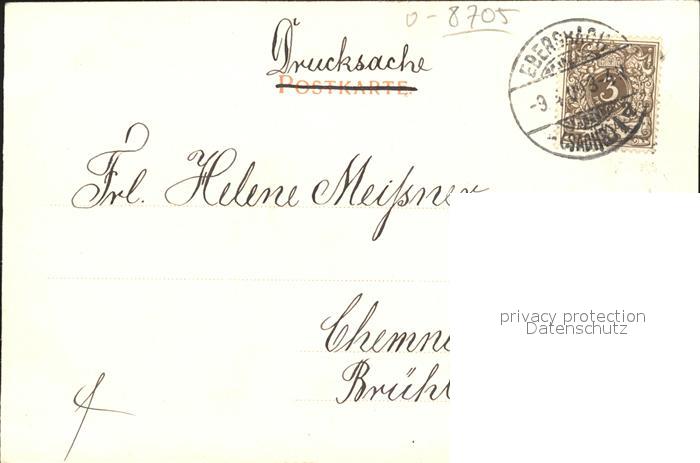 0-8705
Drucksache
POSTKARTE.
3
Frl. Helene Meißner
Chemn
Brüh
privacy protection
Datenschutz